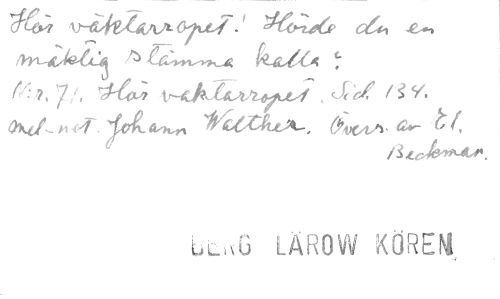 Hör väktarropet! Hörde du en
mäktig stämma kalla?
N:r. 71. Hör väktarropet. Sid. 134.
mel-not. Johann Walther. Övers. av El.
Beckman.
BERG LÄROW KÖREN